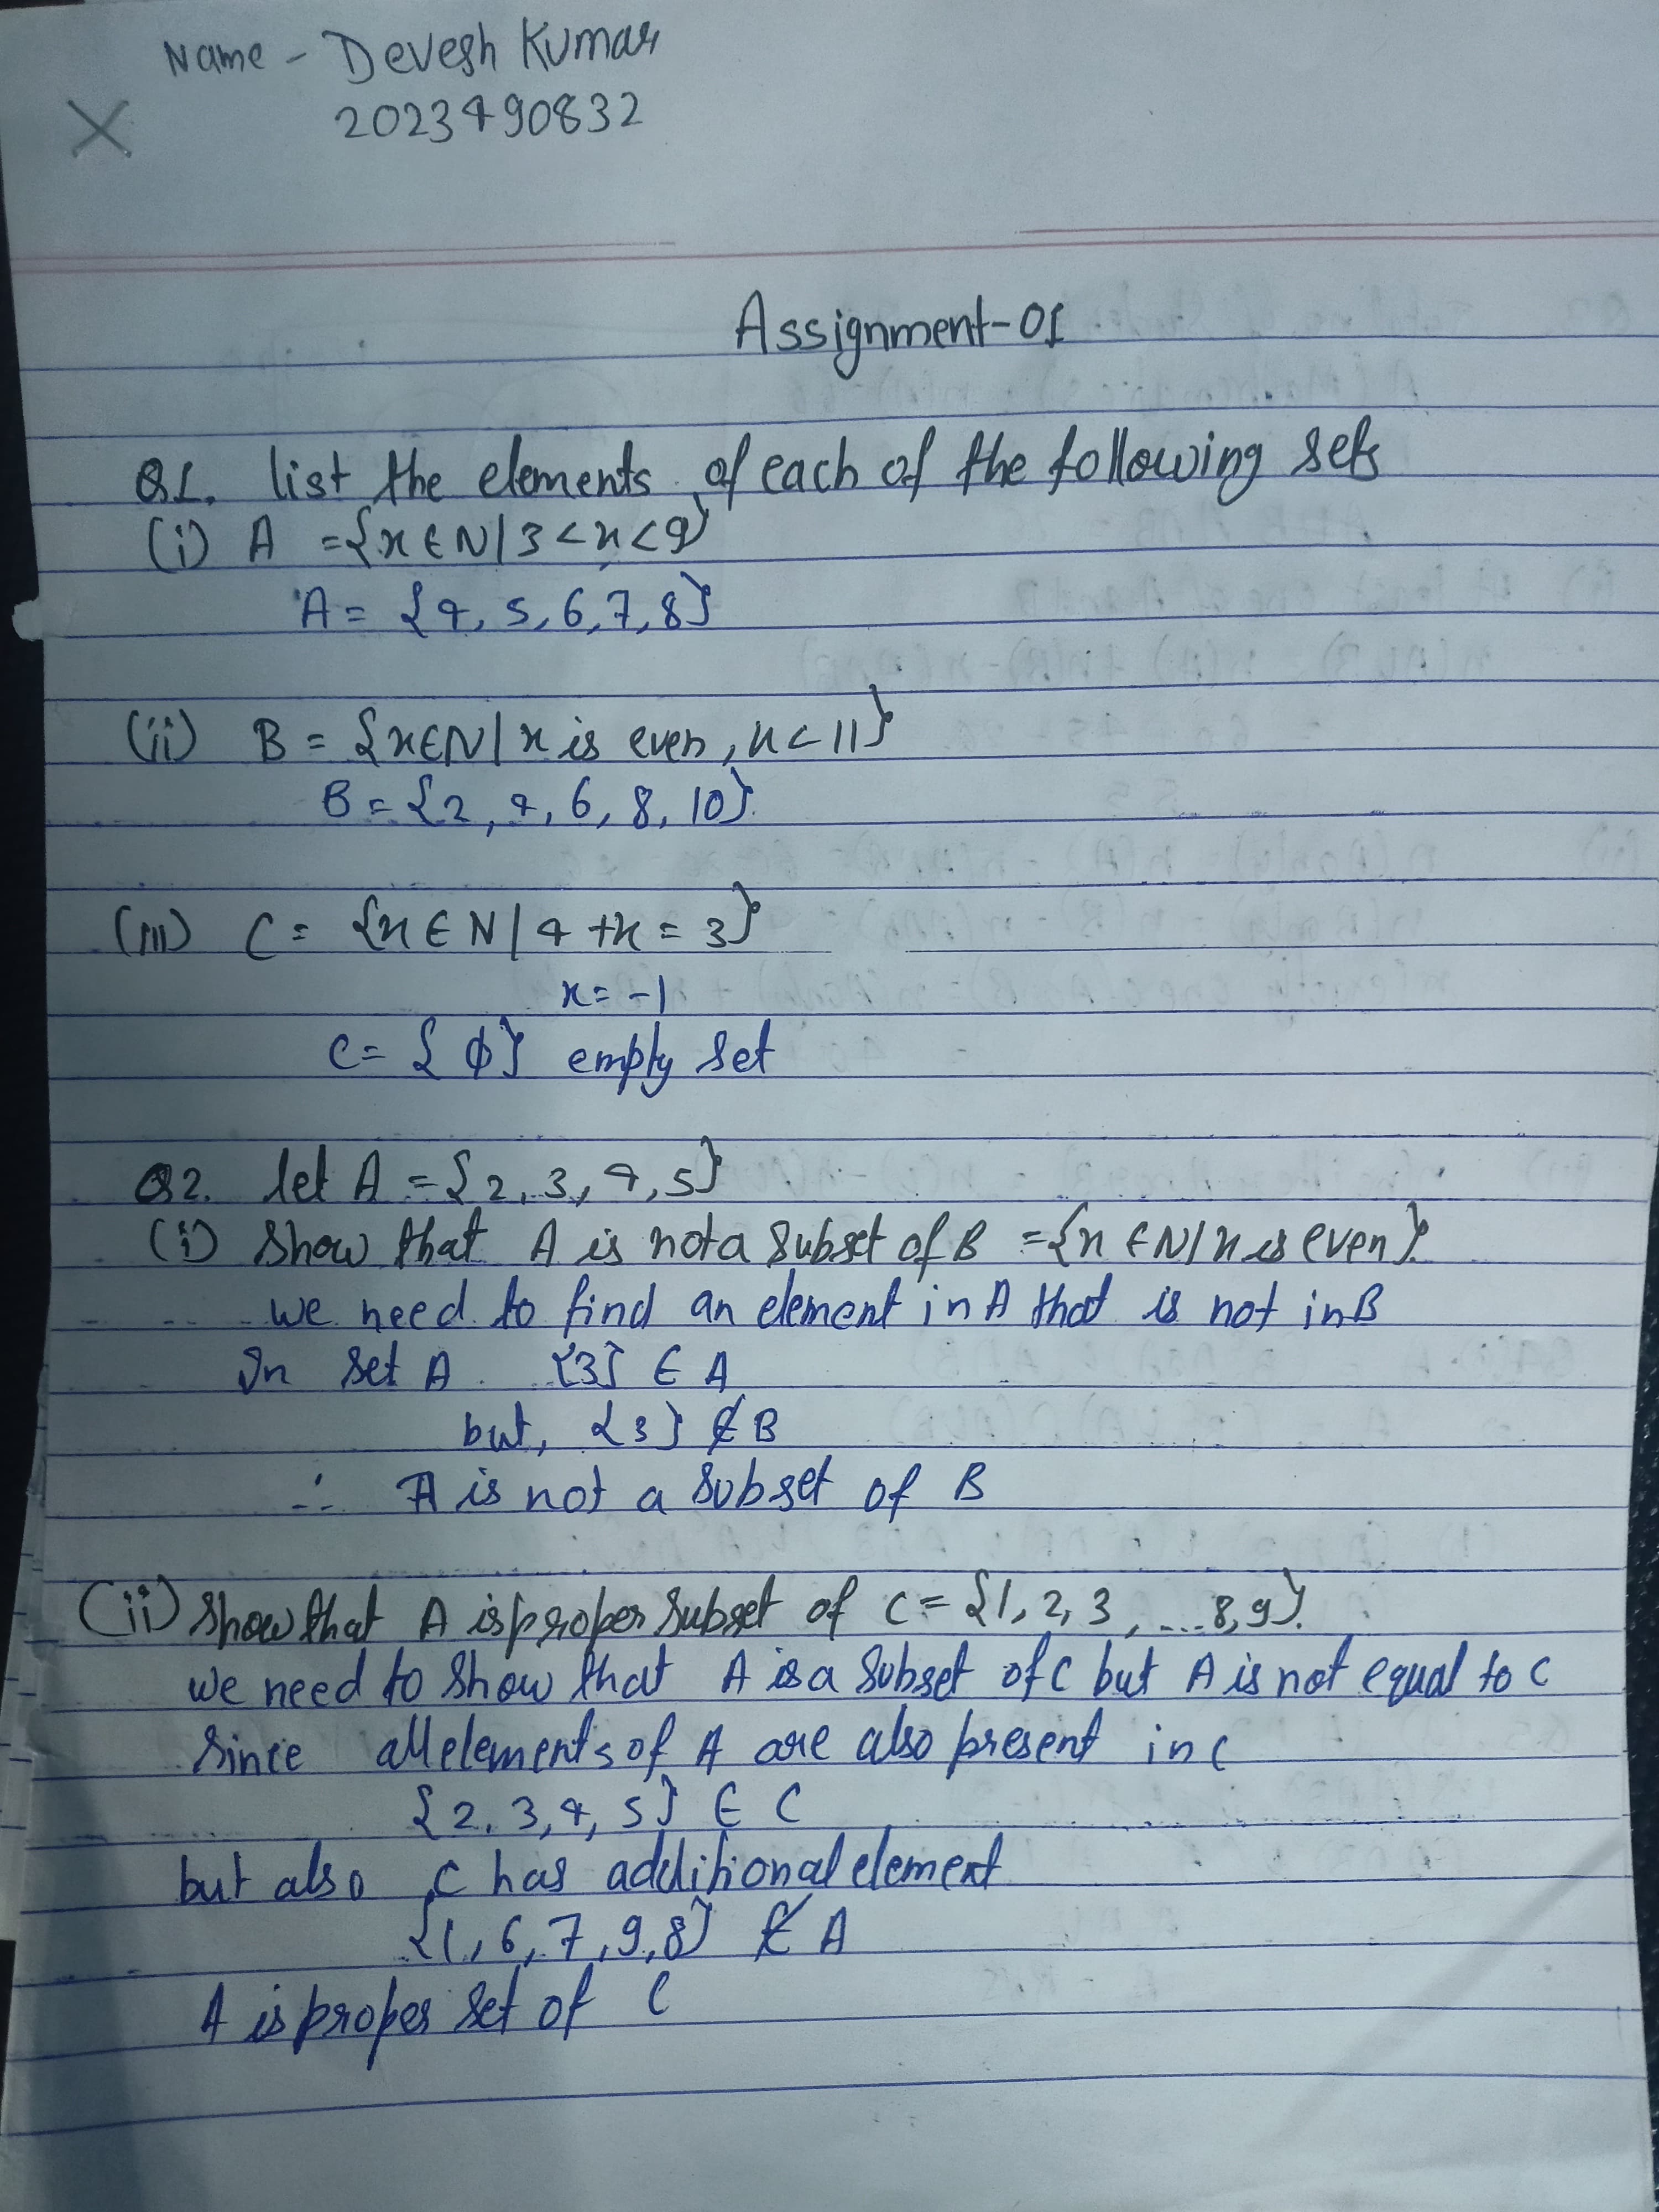 Name - Devesh Kumar
2023490832
Assignment-01
Q1. list the elements of each of the following sets
(i) A = {x ∈ N | 3 < x < 9}
A = {4, 5, 6, 7, 8}
(ii) B = {x ∈ N | x is even, x < 11}
B = {2, 4, 6, 8, 10}
(iii) C = {x ∈ N | 4 + x = 3}
x = -1
C = { ϕ } empty set
Q2. let A = {2, 3, 4, 5}
(i) Show that A is not a subset of B = {x ∈ N | x is even}.
we need to find an element in A that is not in B
In set A {3} ∈ A
but, {3} ∉ B
∴ A is not a subset of B
(ii) Show that A is proper subset of C = {1, 2, 3, ... 8, 9}.
we need to show that A is a subset of C but A is not equal to C
Since all elements of A are also present in C
{2, 3, 4, 5} ∈ C
but also C has additional element
{1, 6, 7, 9, 8} ∉ A
A is proper set of C